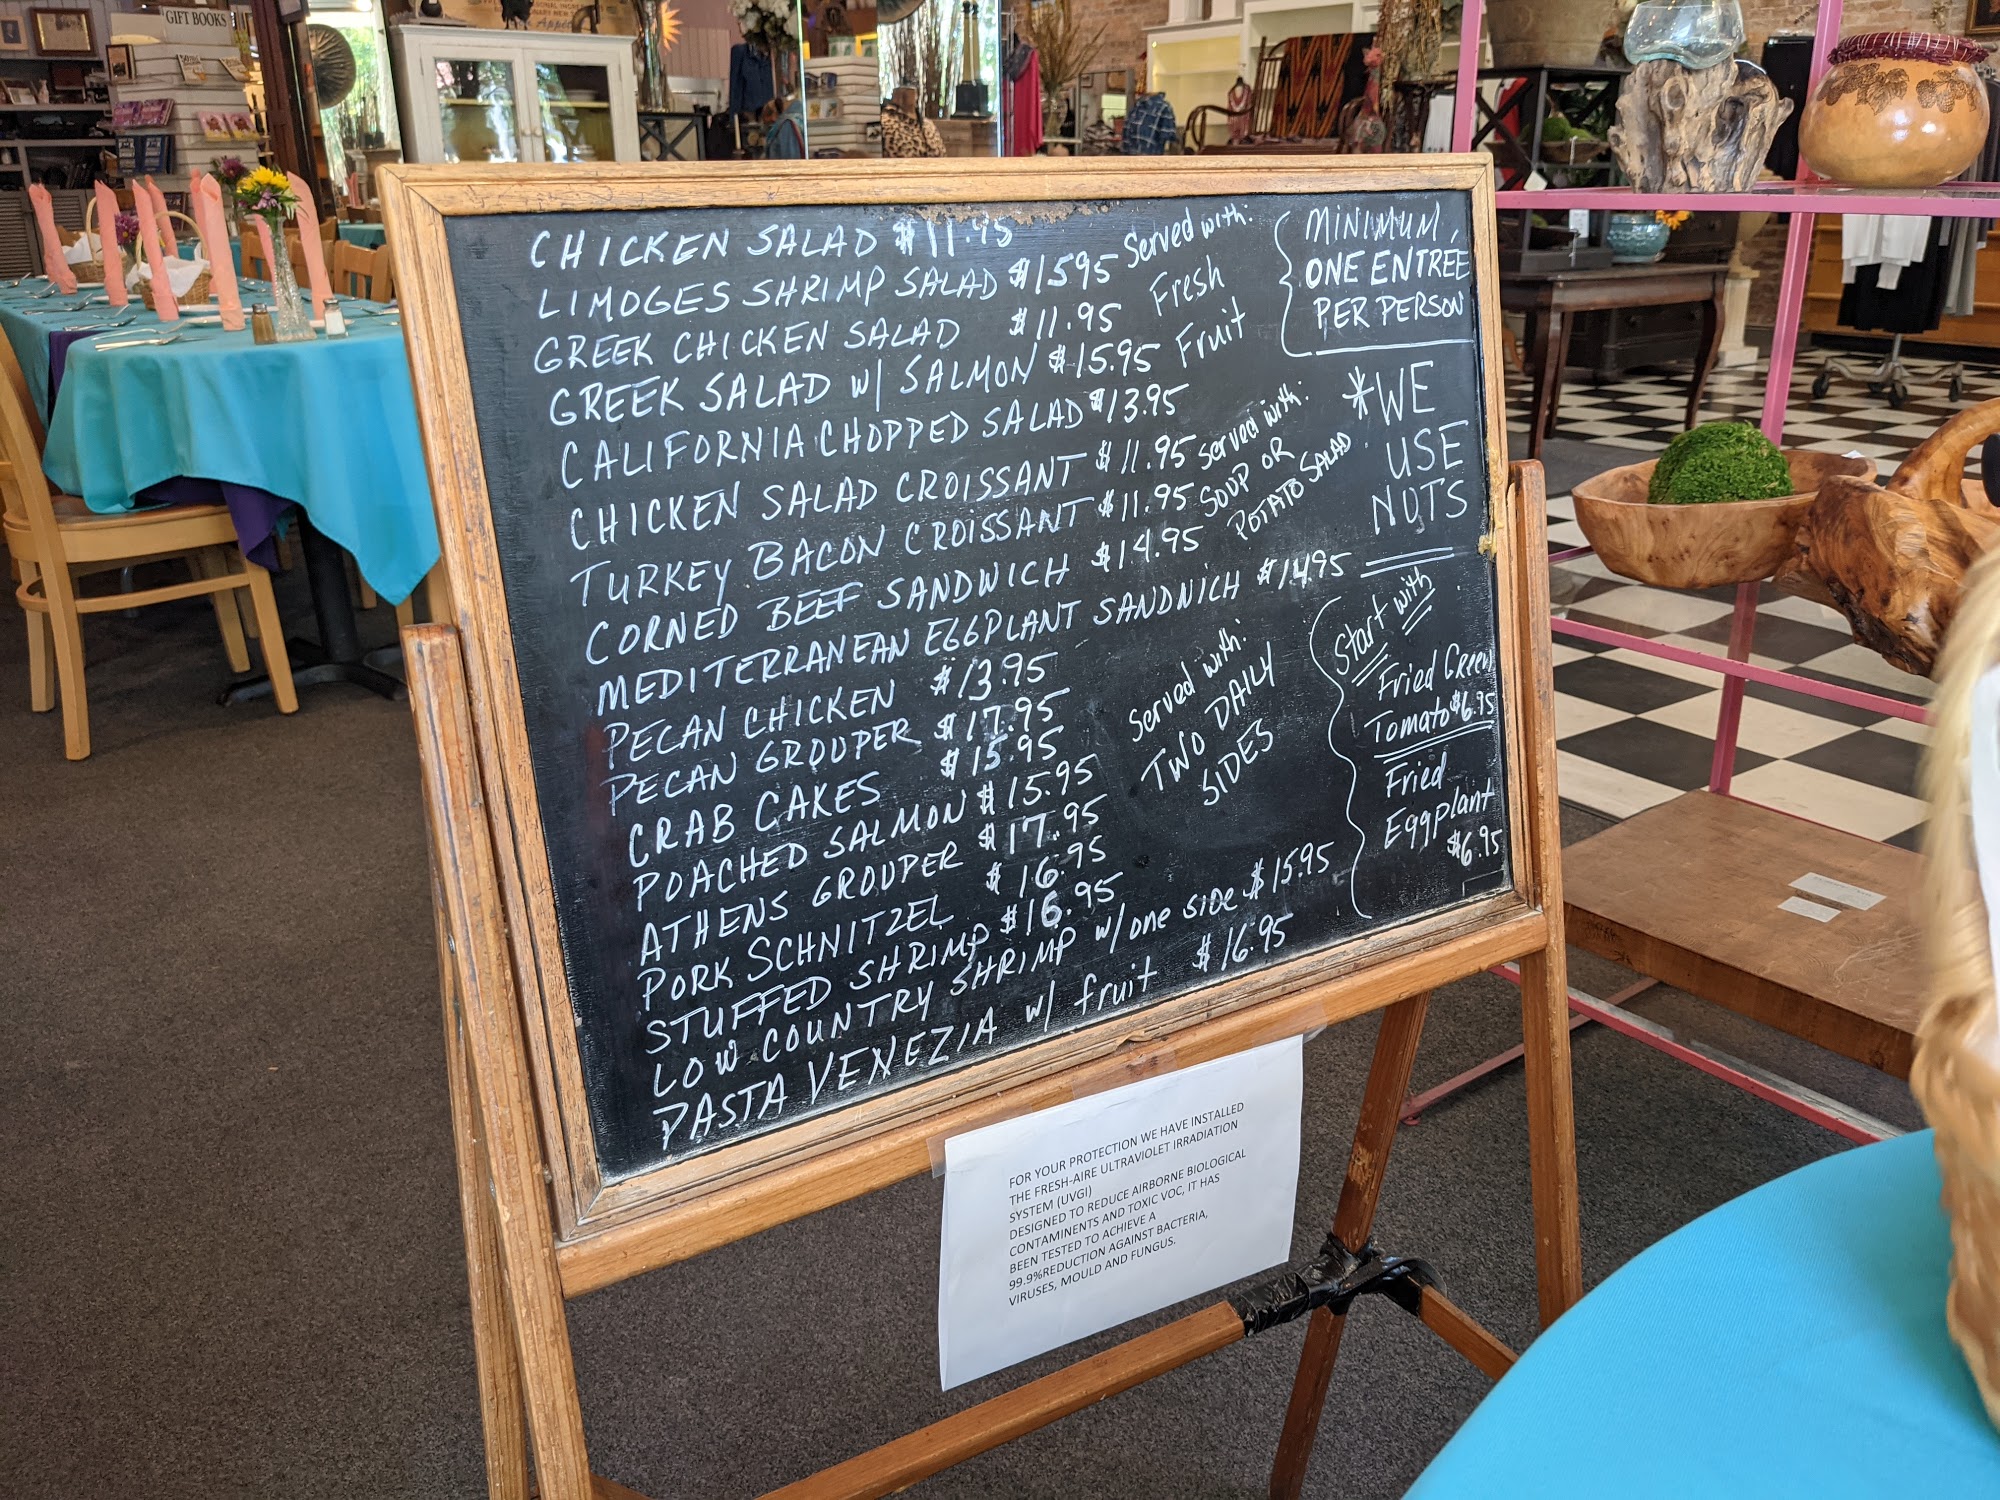 GIFT BOOKS
CHICKEN SALAD $11.95
LIMOGES SHRIMP SALAD $15.95
GREEK CHICKEN SALAD $11.95
GREEK SALAD w/ SALMON $15.95
CALIFORNIA CHOPPED SALAD $13.95
Served with:
Fresh
Fruit
CHICKEN SALAD CROISSANT $11.95
TURKEY BACON CROISSANT $11.95
CORNED BEEF SANDWICH $14.95
MEDITERRANEAN EGGPLANT SANDWICH $14.95
Served with:
SOUP OR
POTATO SALAD
PECAN CHICKEN $13.95
PECAN GROUPER $17.95
CRAB CAKES $15.95
POACHED SALMON $15.95
ATHENS GROUPER $17.95
PORK SCHNITZEL $16.95
STUFFED SHRIMP $16.95
Served with:
TWO DAILY
SIDES
LOW COUNTRY SHRIMP w/one side $15.95
PASTA VENEZIA w/ fruit $16.95
MINIMUM
ONE ENTRÉE
PER PERSON
*WE
USE
NUTS
Start with
Fried Green
Tomato $6.95
Fried
Eggplant
$6.95
FOR YOUR PROTECTION WE HAVE INSTALLED
THE FRESH-AIRE ULTRAVIOLET IRRADIATION
SYSTEM (UVGI)
DESIGNED TO REDUCE AIRBORNE BIOLOGICAL
CONTAMINENTS AND TOXIC VOC, IT HAS
BEEN TESTED TO ACHIEVE A
99.9%REDUCTION AGAINST BACTERIA,
VIRUSES, MOULD AND FUNGUS.